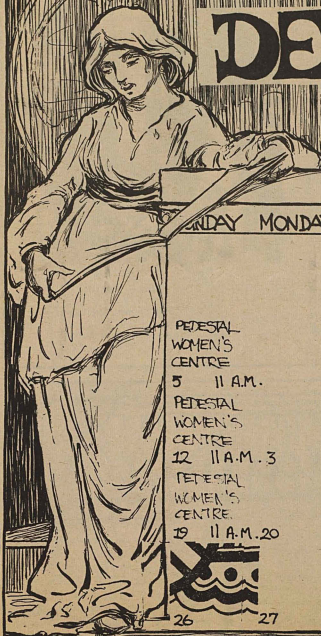 DE
SUNDAY MONDA
PEDESTAL
WOMEN'S
CENTRE
5 11 A.M.
PEDESTAL
WOMEN'S
CENTRE
12 11 A.M. 3
PEDESTAL
WOMEN'S
CENTRE
19 11 A.M. 20
26 27